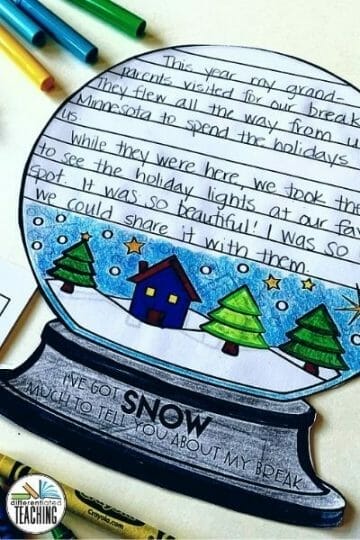 This year my grand-
parents visited for our break
They flew all the way from
Minnesota to spend the holidays
us.
While they were here, we took the
to see the holiday lights at our fav
spot. It was so beautiful! I was so
we could share it with them.
I'VE GOT SNOW
MUCH TO TELL YOU ABOUT MY BREAK
Crayola
differentiated
TEACHING